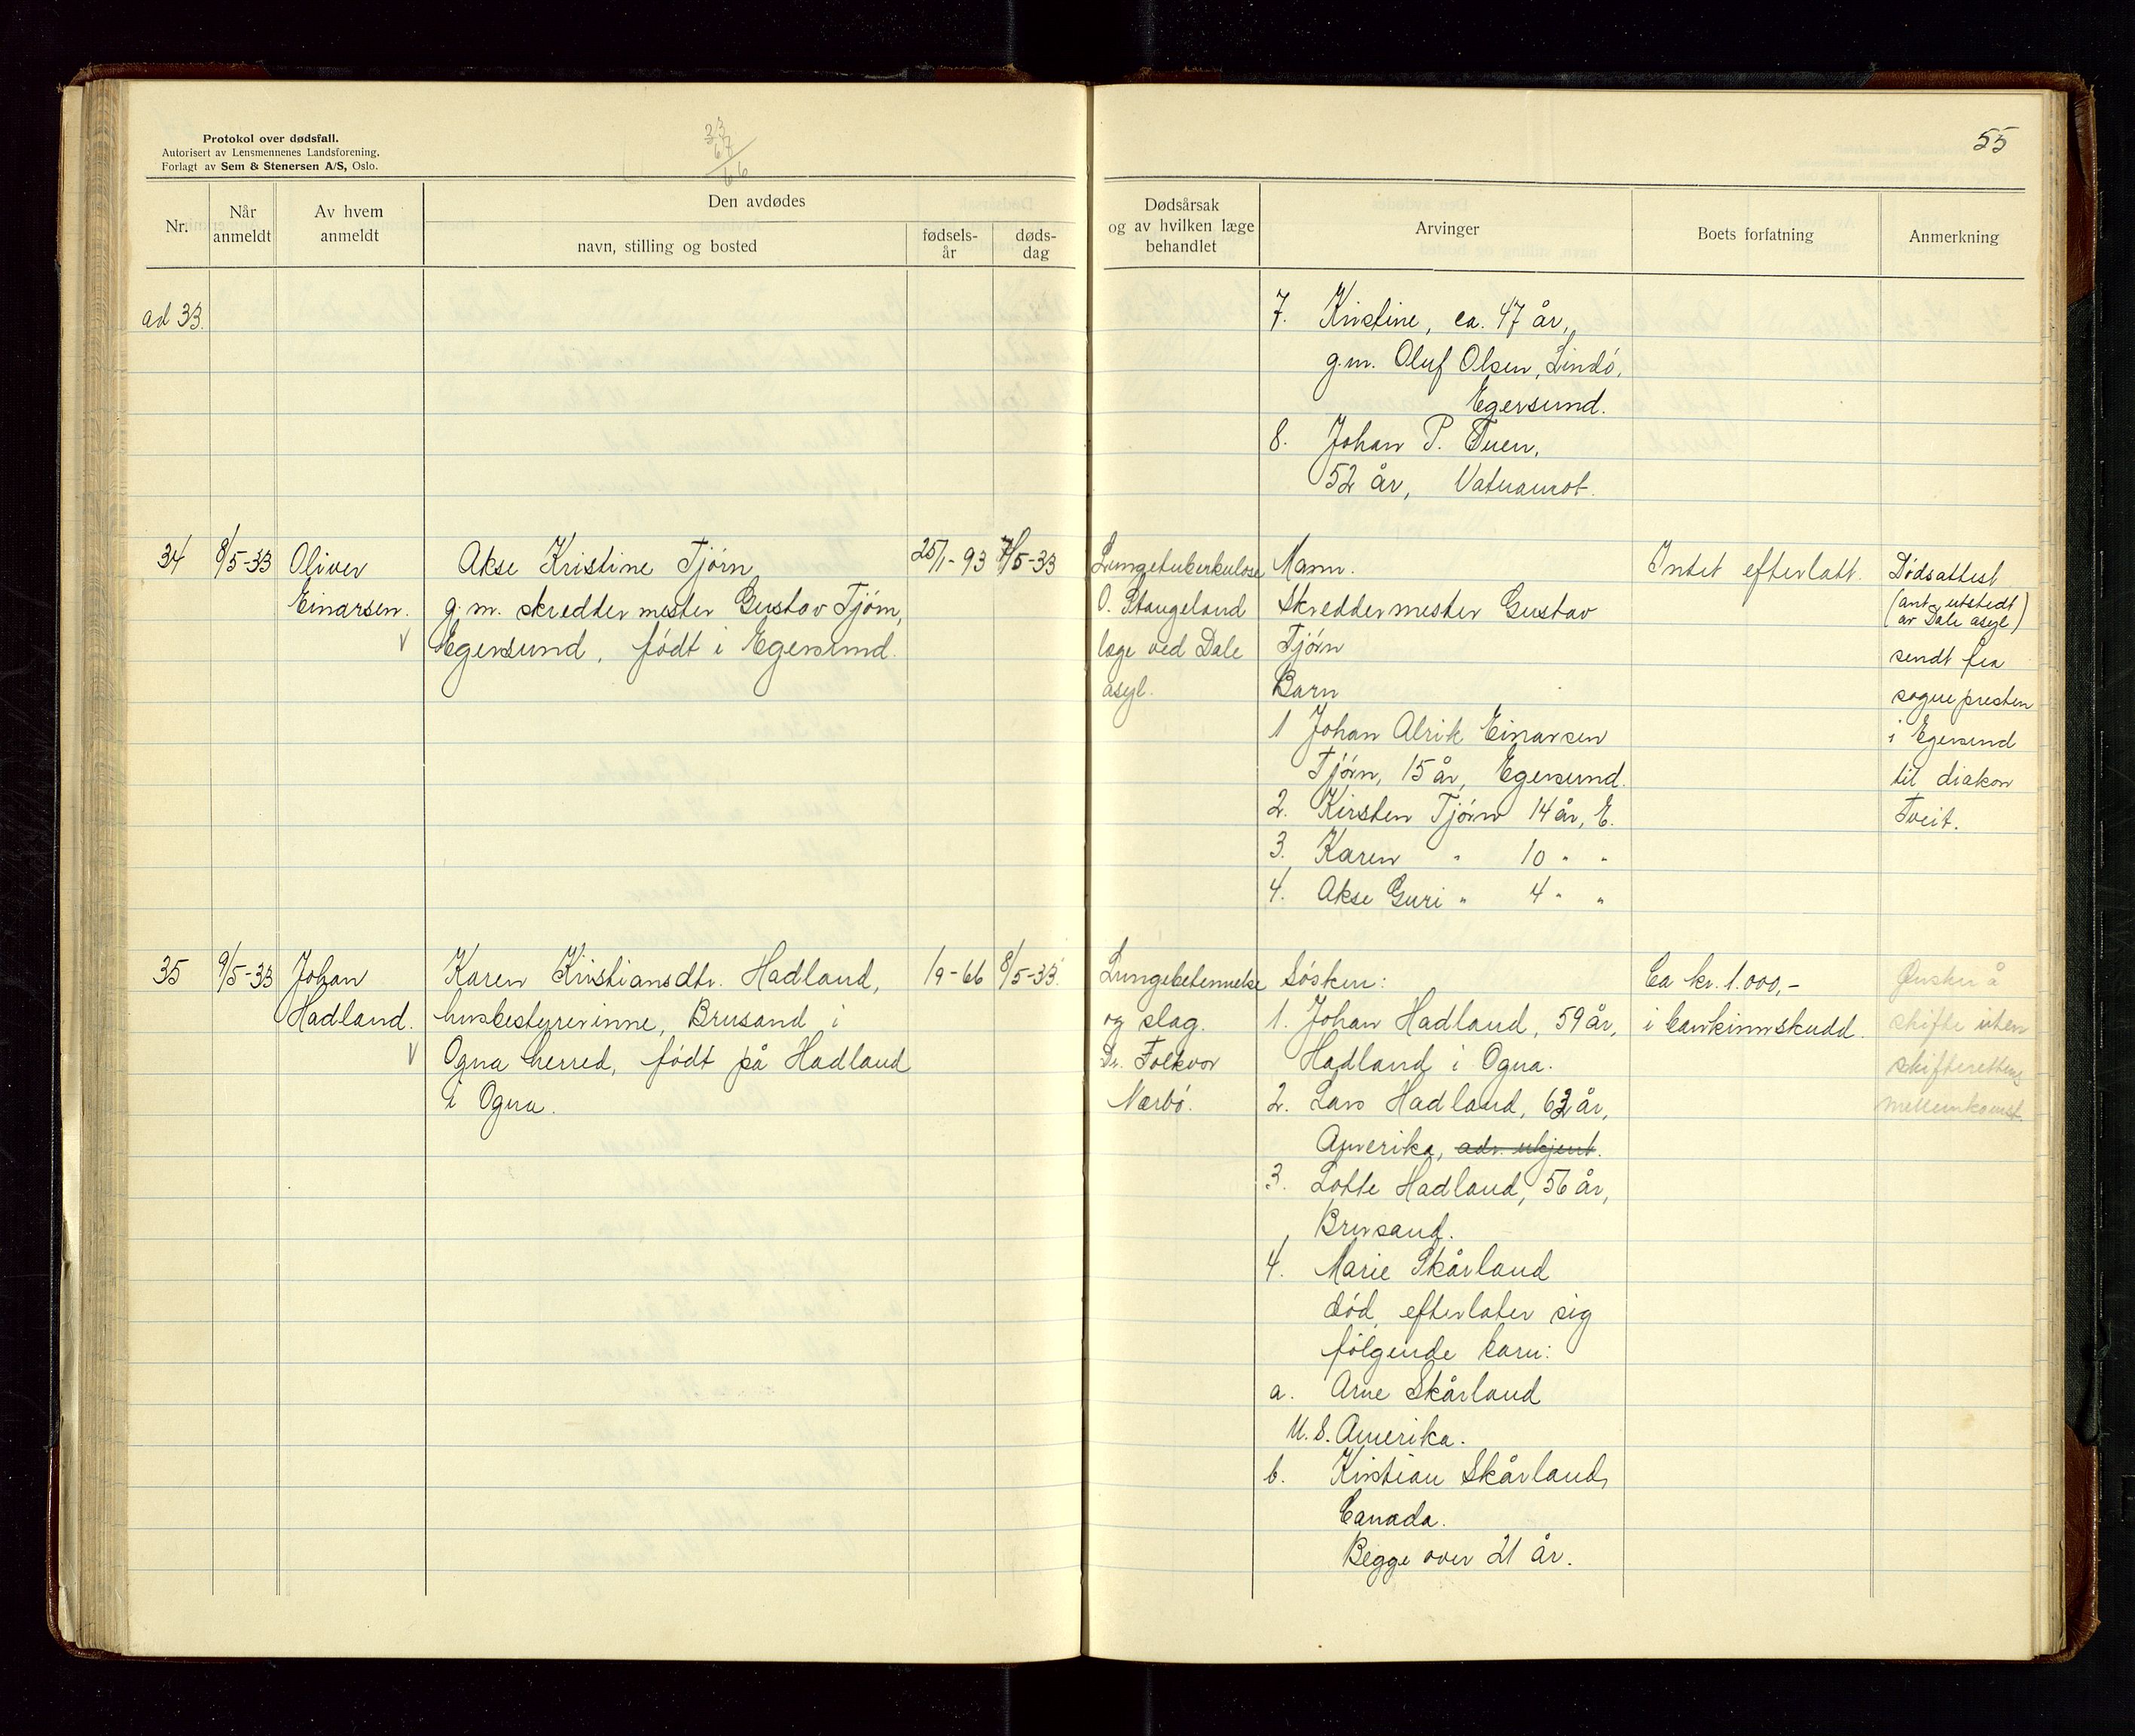 Protokol over dødsfall.
Autorisert av Lensmennenes Landsforening.
Forlagt av Sem & Stenersen A/S, Oslo.
33
67
66
55
Nr.
Når anmeldt
Av hvem anmeldt
Den avdødes
navn, stilling og bosted
fødsels-år
døds-dag
Dødsårsak og av hvilken læge behandlet
Arvinger
Boets forfatning
Anmerkning
ad 33.
7. Kristine, ca. 47 år,
g.m. Oluf Olsen, Lindö,
Egersund.
8. Johan P. Tuen,
52 år, Vatnamot.
34
8/5-33
Oliver
Einarsen.
Akse Kristine Tjörn
g.m. skreddermester Gustav Tjörn,
Egersund, födt i Egersund.
25/1-93
7/5-33
Lungetuberkulose
O. Stangeland
læge ved Dale
asyl.
Mann.
Skreddermester Gustav
Tjörn
Barn
1 Johan Alrik Einarsen
Tjörn, 15 år, Egersund.
2. Kirsten Tjörn 14 år, E.
3. Karen " 10 " "
4. Akse Guri " 4 " "
Intet efterlatt.
Dödsattest
(ant. utstedt
av Dale asyl)
sendt fra
sognepresten
i Egersund
til diakon
Tveit.
35
9/5-33
Johan
Hadland.
Karen Kristiansdtr. Hadland,
husbestyrerinne, Brusand i
Ogna herred, födt på Hadland
i Ogna.
1/9-66
8/5-33.
Lungebetennelse
og slag.
Dr. Folkvor
Nærbö.
Søsken:
1. Johan Hadland, 59 år,
Hadland i Ogna.
2. Lars Hadland, 62 år,
Amerika, adr. ukjent.
3. Lotte Hadland, 56 år,
Brusand.
4. Marie Skårland
död, efterlater sig
fölgende barn:
a. Arne Skårland
U.S. Amerika.
b. Kristian Skårland,
Canada.
Begge over 21 år.
Ca kr. 1.000,-
i bankinnskudd.
Ønsker å
skifte uten
skifterettens
mellemkomst.